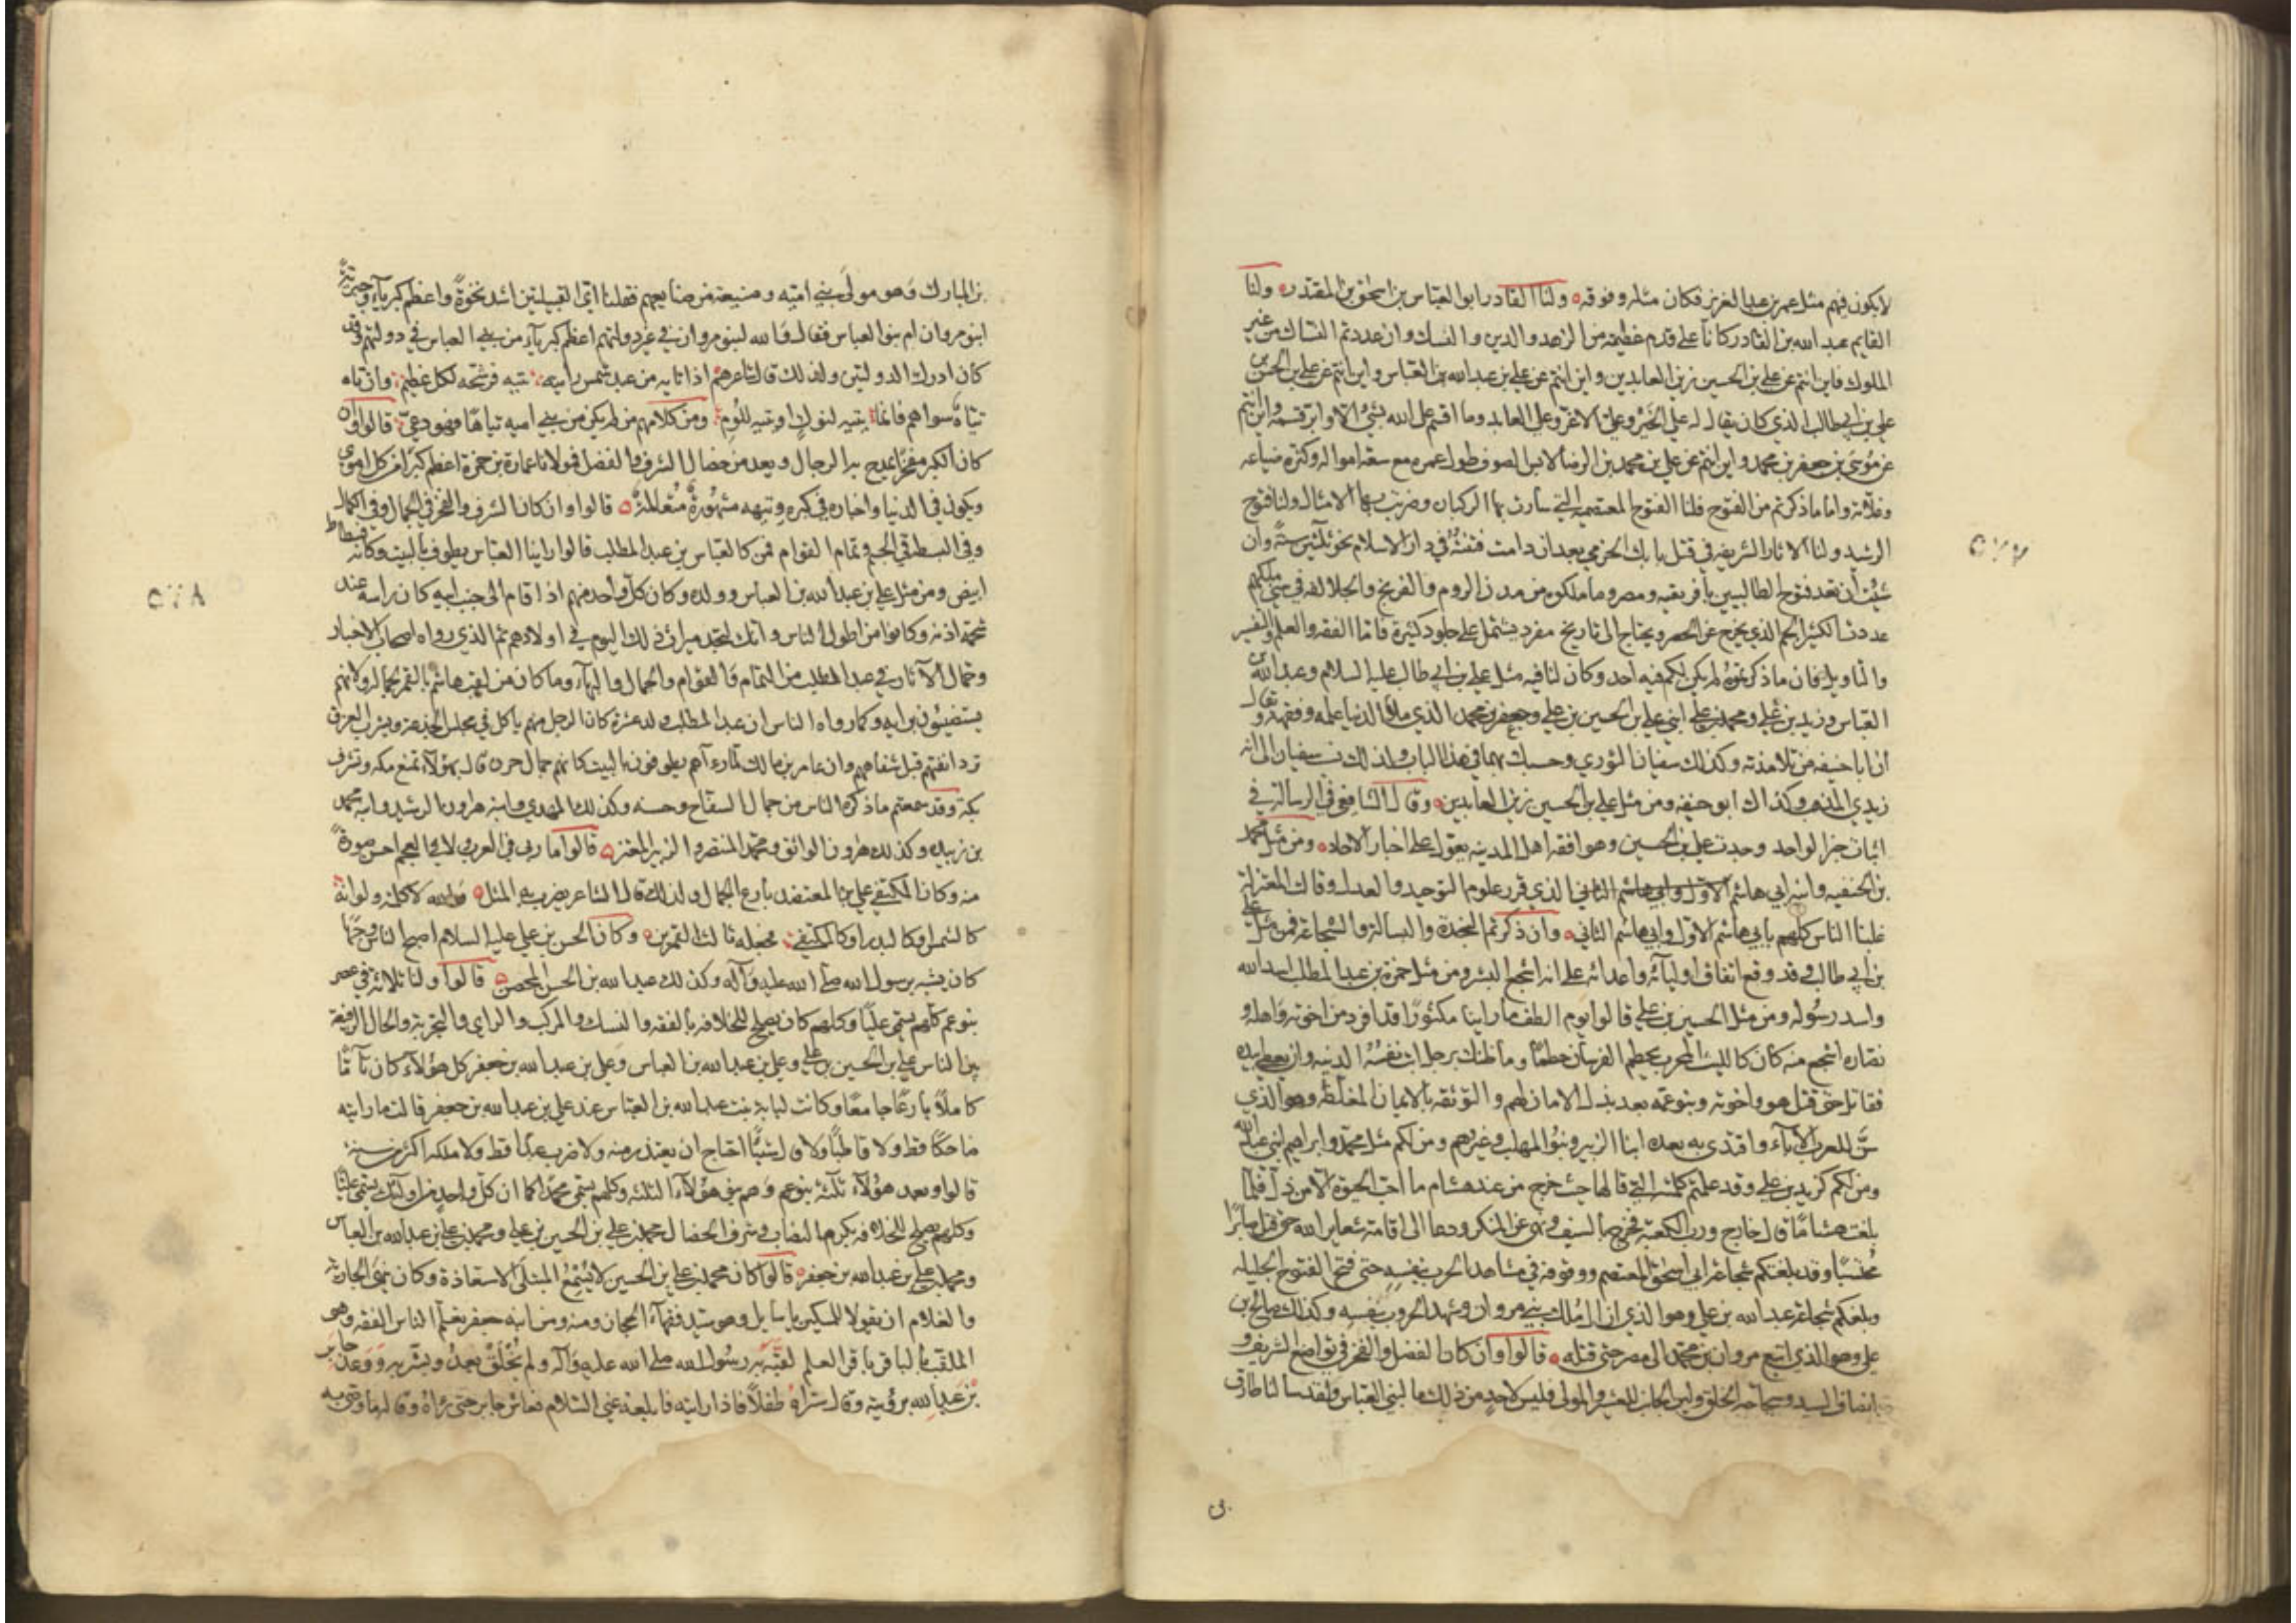 لا يكون فيهم مثل عمر بن عبد العزيز فكان مثله وفوقه ولنا القادر ابو العباس بن اسحق بن المقتدر ولنا
القايم عبد الله بن القادر كانا على قدم عظيمة من الزهد والدين والنسك وان عددتم النساك من غير
الملوك فاين انتم عن علي بن الحسين زين العابدين واين انتم عن علي بن عبد الله بن العباس واين انتم عن علي بن الحسين بن
علي بن ابي طالب الذي كان يقال له علي الخير وعلي الاغر وعلي العابد وما اقسم على الله بشي الا وابر قسمه واين انتم
عن موسى بن جعفر بن محمد واين انتم عن علي بن محمد بن الرضا لابس الصوف طول عمره مع سعة امواله وكثرة ضياعه
وغلاته واما ما ذكرتم من الفتوح فلنا الفتوح المعتصمية التي سارت بها الركبان وضربت بها الامثال ولنا فتوح
الرشيد ولنا الاثار الشريفة في قتل بابك الخرمي بعد ان دامت فتنته في دار الاسلام نحو ثلثين سنة وان
شئت ان تعد فتوح الطالبيين بافريقيه ومصر وما ملكوه من مدن الروم والفرنج والجلالقة في سني ملكهم
عددت الكثير الجم الذي يخرج عن الحصر ويحتاج الى تاريخ مفرد يشتمل على جلود كثيرة فاما الفقه والعلم والتفسير
والتاويل فان ما ذكرتموه لم يكن لكم فيه احد وكان لنا فيه مثل علي بن ابي طالب عليه السلام وعبد الله بن
العباس وزيد بن علي ومحمد بن علي ابني علي بن الحسين بن علي وجعفر بن محمد الذي ملأ الدنيا علمه وفقهه ويقال
ان ابا حنيفه من تلامذته وكذلك سفيان الثوري وحسبك بهما في هذا الباب ولذلك نسب سفيان الى انه
زيدي المذهب وكذلك ابو حنيفه ومن مثل علي بن الحسين زين العابدين وقال الشافعي في الرسالة في
اثبات خبر الواحد وجدت علي بن الحسين وهو افقه اهل المدينه يعول على اخبار الاحاد ومن مثل محمد
بن الحنفيه وابنه ابي هاشم الذي قرر علوم التوحيد والعدل وقالت المعتزلة
غلبنا الناس كلهم بابي هاشم الاول وابي هاشم الثاني وان ذكرتم النجدة والبسالة والشجاعة فمن مثل علي
بن ابي طالب وقد وقع اتفاق اوليائه واعدائه على انه اشجع البشر ومن مثل حمزة بن عبد المطلب اسد الله
واسد رسوله ومن مثل الحسين بن علي قالوا يوم الطف ما راينا مكثورا قد افرد من اخوته واهله و
نصاره اشجع منه كان كالليث المحرب يحطم الفرسان حطما وما ظنك برجل ابت نفسه الدنية وان يعطي بيده
فقاتل حتى قتل هو واخوته وبنو عمه بعد بذل الامان لهم والتوثقه بالايمان المغلظة وهو الذي
سن للعرب الاباء واقتدى به بعده ابنا الزبير وبنو المهلب وغيرهم ومن لكم مثل محمد وابراهيم ابني عبد الله
ومن لكم كزيد بن علي وقد علمتم كلمته التي قالها حيث خرج من عند هشام ما احب الحيوة الا من ذل فلما
بلغت هشاما قال خارج ورب الكعبة فخرج بالسيف ونهى عن المنكر ودعا الى اقامة شعاير الله حتى قتل صابرا
محتسبا وقد بلغتكم شجاعة ابي اسحق المعتصم ووقوفه في مشاهد الحرب بنفسه حتى فتح الفتوح الجليله
وبلغتكم شجاعة عبد الله بن علي وهو الذي ازال ملك بني مروان وشهد الحروب بنفسه وكذلك صالح بن
علي وهو الذي اتبع مروان بن محمد الى مصر حتى قتله قالوا وان كان الفضل والفخر في تواضع الشريف و
انصاف السيد وسجاحة الخلق ولين الجانب للعشير والمولى فليس لاحد من ذلك ما لبني العباس ولقد سالنا طارق
بن
بن المبارك وهو مولى بني امية وصنيعة من صنايعهم فقلنا اي القبيلتين اشد نخوة واعظم كبرياء وجبرية
ابنو مروان ام بنو العباس فقال والله لبنو مروان في غير دولتهم اعظم كبرياء من بني العباس في دولتهم وقد
كان ادرك الدولتين ولذلك قال شاعرهم اذا تايه من عبد شمس رايته يتيه فرشحه لكل عظيم وان تاه
تياه سواهم فانما يتيه لنوك او يتيه للوم ومن كلامهم من لم يكن من بني اميه تياها فهو دعي قالوا وان
كان الكبر مفخرا يمدح به الرجال ويعد من خصال الشرف والفضل فمولانا عمارة بن حمزة اعظم كبرا من كل اموي
ويكون في الدنيا واخباره في كبره وتيهه مشهورة متعالمة قالوا وان كان الشرف والفخر في الجمال وفي الكمال
وفي البسطة في الجسم وتمام القوام فمن كالعباس بن عبد المطلب قالوا راينا العباس يطوف بالبيت وكانه فسطاط
ابيض ومن مثل علي بن عبد الله بن العباس وولده وكان كل واحد منهم اذا قام الى جنب ابيه كان راسه عند
شحمة اذنه وكانوا من اطول الناس وانك لتجد ميراث ذلك اليوم في اولادهم ثم الذي رواه اصحاب الاخبار
وحمال الآثار في عبد المطلب من التمام والقوام والجمال والبهاء وما كان من لقب هاشم بالقمر لجماله ولانهم
يستضيئون برايه وكما رواه الناس ان عبد المطلب ولد عشرة كان الرجل منهم ياكل في مجلس الجذعة ويشرب الفرق
ترد انفتهم قبل شفاههم وان عامر بن مالك لما رءاهم يطوفون بالبيت كانهم جمال جون قال بهؤلاء تمنع مكه وتشرف
بكة وقد سمعتم ما ذكره الناس من جمال السفاح وحسنه وكذلك المهدي وابنه هارون الرشيد وابنه محمد
بن زبيده وكذلك هارون الواثق ومحمد المنتصر والزبير المعتز قالوا ما روي في العرب ولا في العجم احسن صورة
منه وكان المكتفي علي بن المعتضد بارع الجمال ولذلك قال الشاعر يضرب به المثل والله لا كلمته ولو انه
كالشمس او كالبدر او كالمكتفي فجعله ثالث القمرين وكان الحسن بن علي عليه السلام اصبح الناس وجها
كان يشبه برسول الله صلى الله عليه وآله وكذلك عبد الله بن الحسن المحض قالوا ولنا ثلاثة في عصر
بنو عم كلهم يسمى عليا وكلهم كان يصلح للخلافه بالفقه والنسك والمركب والراي والتجربة والحال الرفيعة
بين الناس علي بن الحسين بن علي وعلي بن عبد الله بن العباس وعلي بن عبد الله بن جعفر كل هؤلاء كان تاما
كاملا بارعا جامعا وكانت لبابة بنت عبد الله بن العباس عند علي بن عبد الله بن جعفر قالت ما رايته
ضاحكا قط ولا قاطبا ولا قال شيئا احتاج ان يعتذر منه ولا ضرب عبدا قط ولا ملكه اكثر من سنة
قالوا وبعد هؤلاء ثلثة بنو عم وهم بنو هؤلاء الثلثة وكلهم يسمى محمدا كما ان كل واحد من اولئك يسمى عليا
وكلهم يصلح للخلافه بكرم النصاب وشرف الخصال محمد بن علي بن الحسين بن علي ومحمد بن علي بن عبد الله بن العباس
ومحمد بن علي بن عبد الله بن جعفر قالوا كان محمد بن علي بن الحسين لا يسمع المبتلى الاستعاذة وكان ينهى الجارية
والغلام ان يقولا للمسكين يا سايل وهو سيد فقهاء الحجاز ومنه ومن ابنه جعفر تعلم الناس الفقه وهو
الملقب بالباقر باقر العلم لقبه به رسول الله صلى الله عليه وآله ولم يخلق بعد وبشر به ووعد جابر
بن عبد الله برؤيته وقال ستراه طفلا فاذا رايته فابلغه عني السلام فعاش جابر حتى رآه وقال له ما وصى به
٥٢٧
٥٢٨